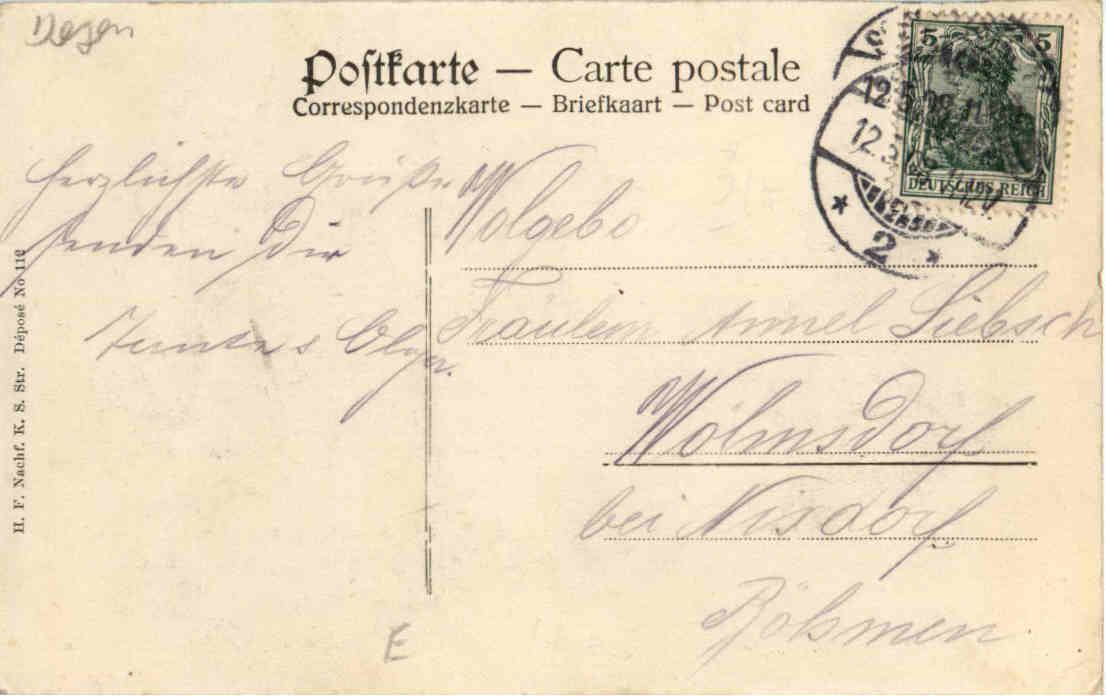 Postkarte — Carte postale
Correspondenzkarte — Briefkaart — Post card
5 5
DEUTSCHES REICH
12.5.09.11
12.5
* 2 *
Herzlichste Grüße
senden Dir
Olga.
H. F. Nachf. K. S. Str. Déposé No 112
Wolgebo
Fräulein Annel Liebsch
Wölmsdorf
bei Nixdorf
Böhmen
E